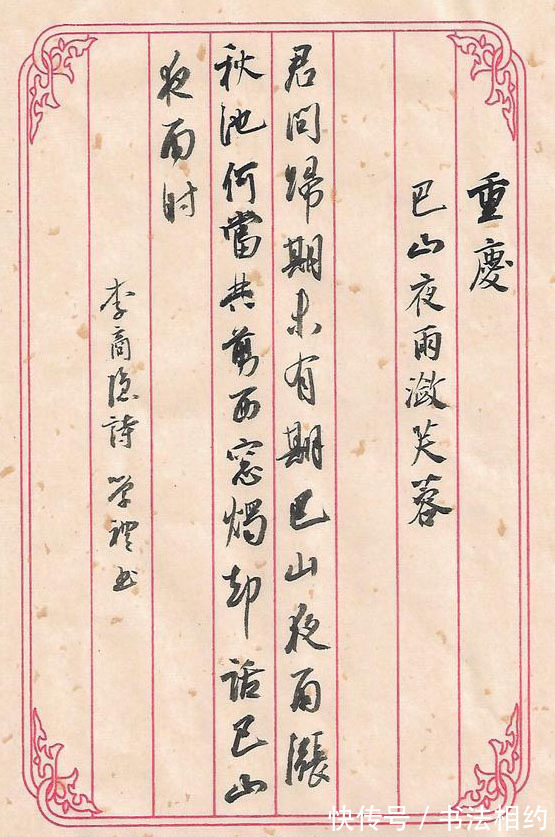 重慶
巴山夜雨激芙蓉
君问歸期未有期巴山夜雨漲
秋池何當共剪西窓燭却话巴山
夜雨时
李商隐詩 学禮书
快传号 / 书法相约